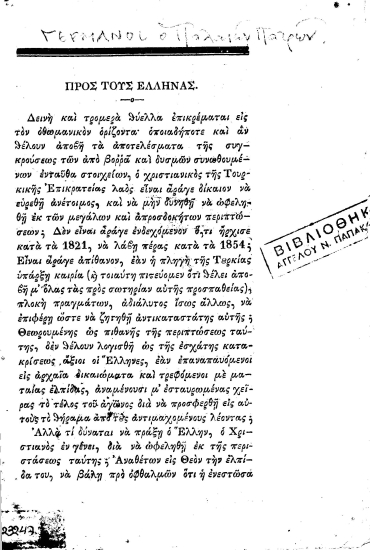 ΓΕΡΜΑΝΟΣ ο Παλαιών Πατρών
ΠΡΟΣ ΤΟΥΣ ΕΛΛΗΝΑΣ.
Δεινὴ καὶ τρομερὰ θύελλα ἐπικρέμαται εἰς
τὸν ὀθωμανικὸν ὁρίζοντα· ὁποιαδήποτε καὶ ἂν
θέλουν ἀποβῆ τὰ ἀποτελέσματα τῆς συγ-
κρούσεως τῶν ἀπὸ βοῤῥᾶ καὶ δυσμῶν συνωθουμέ-
νων ἐνταῦθα στοιχείων, ὁ χριστιανικὸς τῆς Τουρ-
κικῆς Ἐπικρατείας λαὸς εἶναι ἄραγε δίκαιον νὰ
εὑρεθῆ ἀνέτοιμος, καὶ νὰ μὴν δυνηθῆ νὰ ὠφελη-
θῆ ἐκ τῶν μεγάλων καὶ ἀπροσδοκήτων περιπτώ-
σεων; Δὲν εἶναι ἄραγε ἐνδεχόμενον ὅ,τι ἤρχισε
κατὰ τὸ 1821, νὰ λάβῃ πέρας κατὰ τὸ 1854;
Εἶναι ἄραγε ἀπίθανον, ἐὰν ἡ πληγὴ τῆς Τερκίας
ὑπάρξῃ καιρία (ὡς τοιαύτη πιστεύομεν ὅτι θέλει ἀπο-
βῆ μ' ὅλας τὰς πρὸς σωτηρίαν αὐτῆς προσπαθείας),
πλοκὴ πραγμάτων, ἀδιάλυτος ἴσως ἄλλως, νὰ
ἐπιφέρῃ ὥστε νὰ ζητηθῆ ἀντικαταστάτης αὐτῆς;
Θεωρουμένης ὡς πιθανῆς τῆς περιπτώσεως ταύ-
της, δὲν θέλουν λογισθῆ ὡς τῆς ἐσχάτης κατα-
κρίσεως ἄξιοι οἱ Ἕλληνες, ἐὰν ἐπαναπαυόμενοι
εἰς ἀρχαῖα δικαιώματα καὶ τρεφόμενοι μὲ μα-
ταίας ἐλπίδας, ἀναμένουσι μ' ἐσταυρωμένας χεῖ-
ρας τὸ τέλος τοῦ ἀγῶνος διὰ νὰ προσφερθῆ εἰς αὐ-
τοὺς τὸ θήραμα ἀπὸ τὰς ἀντιμαχομένους λέοντας;
Ἀλλὰ τί δύναται νὰ πράξῃ ὁ Ἕλλην, ὁ Χρι-
στιανὸς ἐν γένει, διὰ νὰ ὠφεληθῆ ἐκ τῆς περι-
στάσεως ταύτης; Ἀναθέτων εἰς Θεὸν τὴν ἐλπί-
δα του, νὰ βάλῃ πρὸ ὀφθαλμῶν ὅτι ἡ ἐνεστῶσα
ΒΙΒΛΙΟΘΗΚ
ΑΓΓΕΛΟΥ Ν. ΠΑΠΑΚ
23247